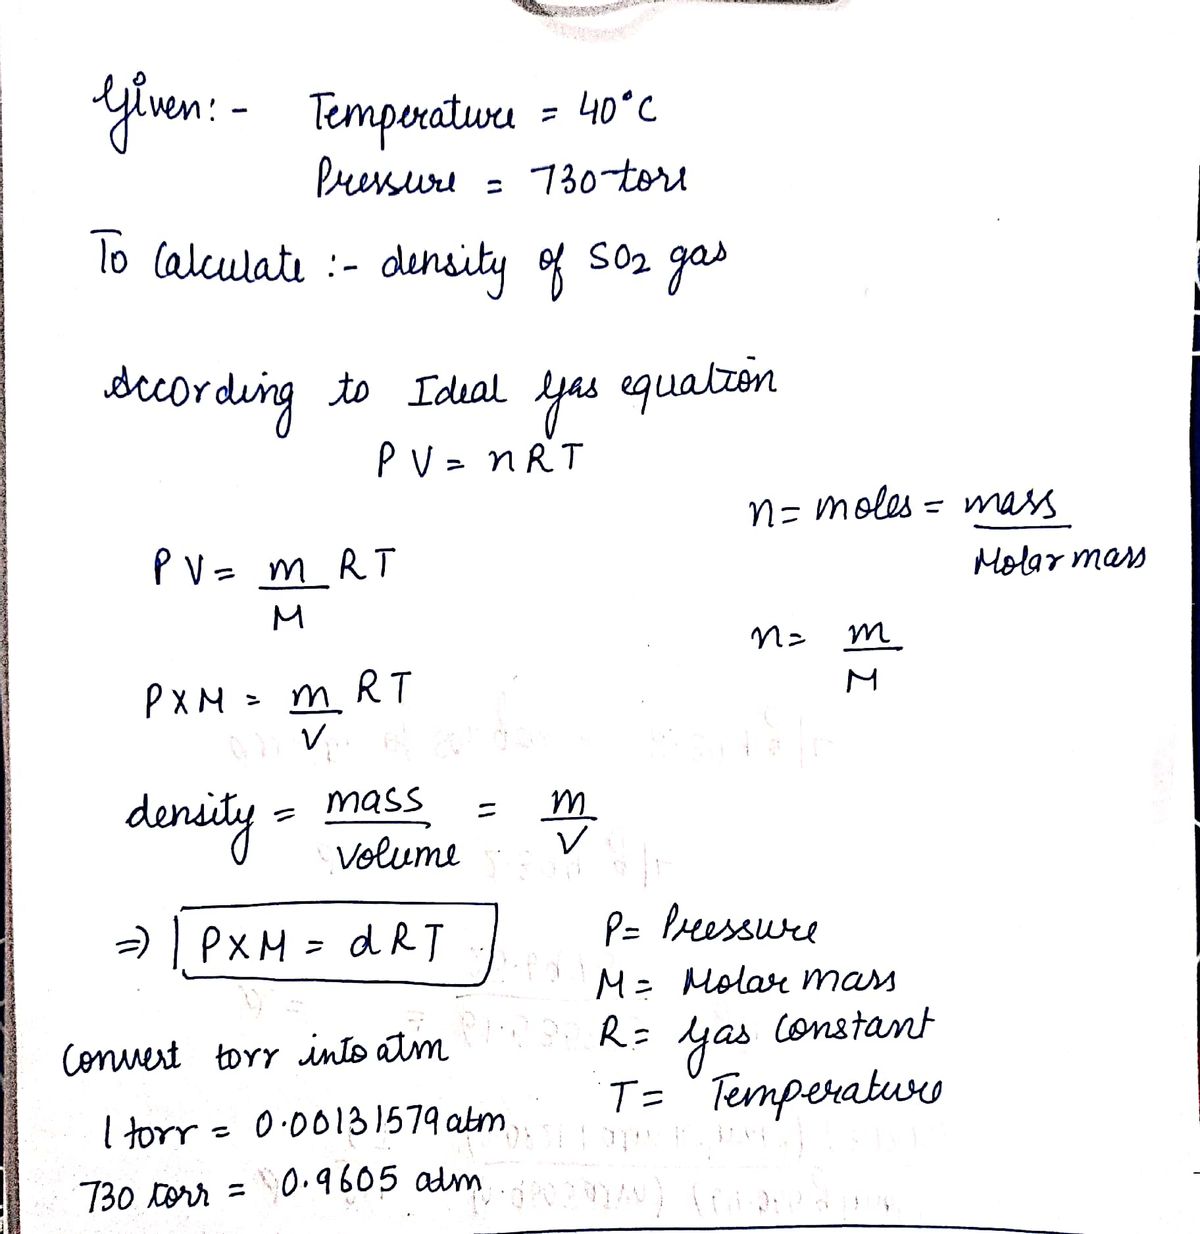 Given: - Temperature = 40°C
Pressure = 730 torr
To Calculate :- density of SO2 gas
According to Ideal gas equation
PV = nRT
n = moles = mass
Molar mass
PV = m RT
M
n = m
M
P X M = m RT
V
density = mass = m
volume V
⇒ P X M = dRT
P = Pressure
M = Molar mass
R = gas Constant
T = Temperature
Convert torr into atm
1 torr = 0.00131579 atm
730 torr = 0.9605 atm